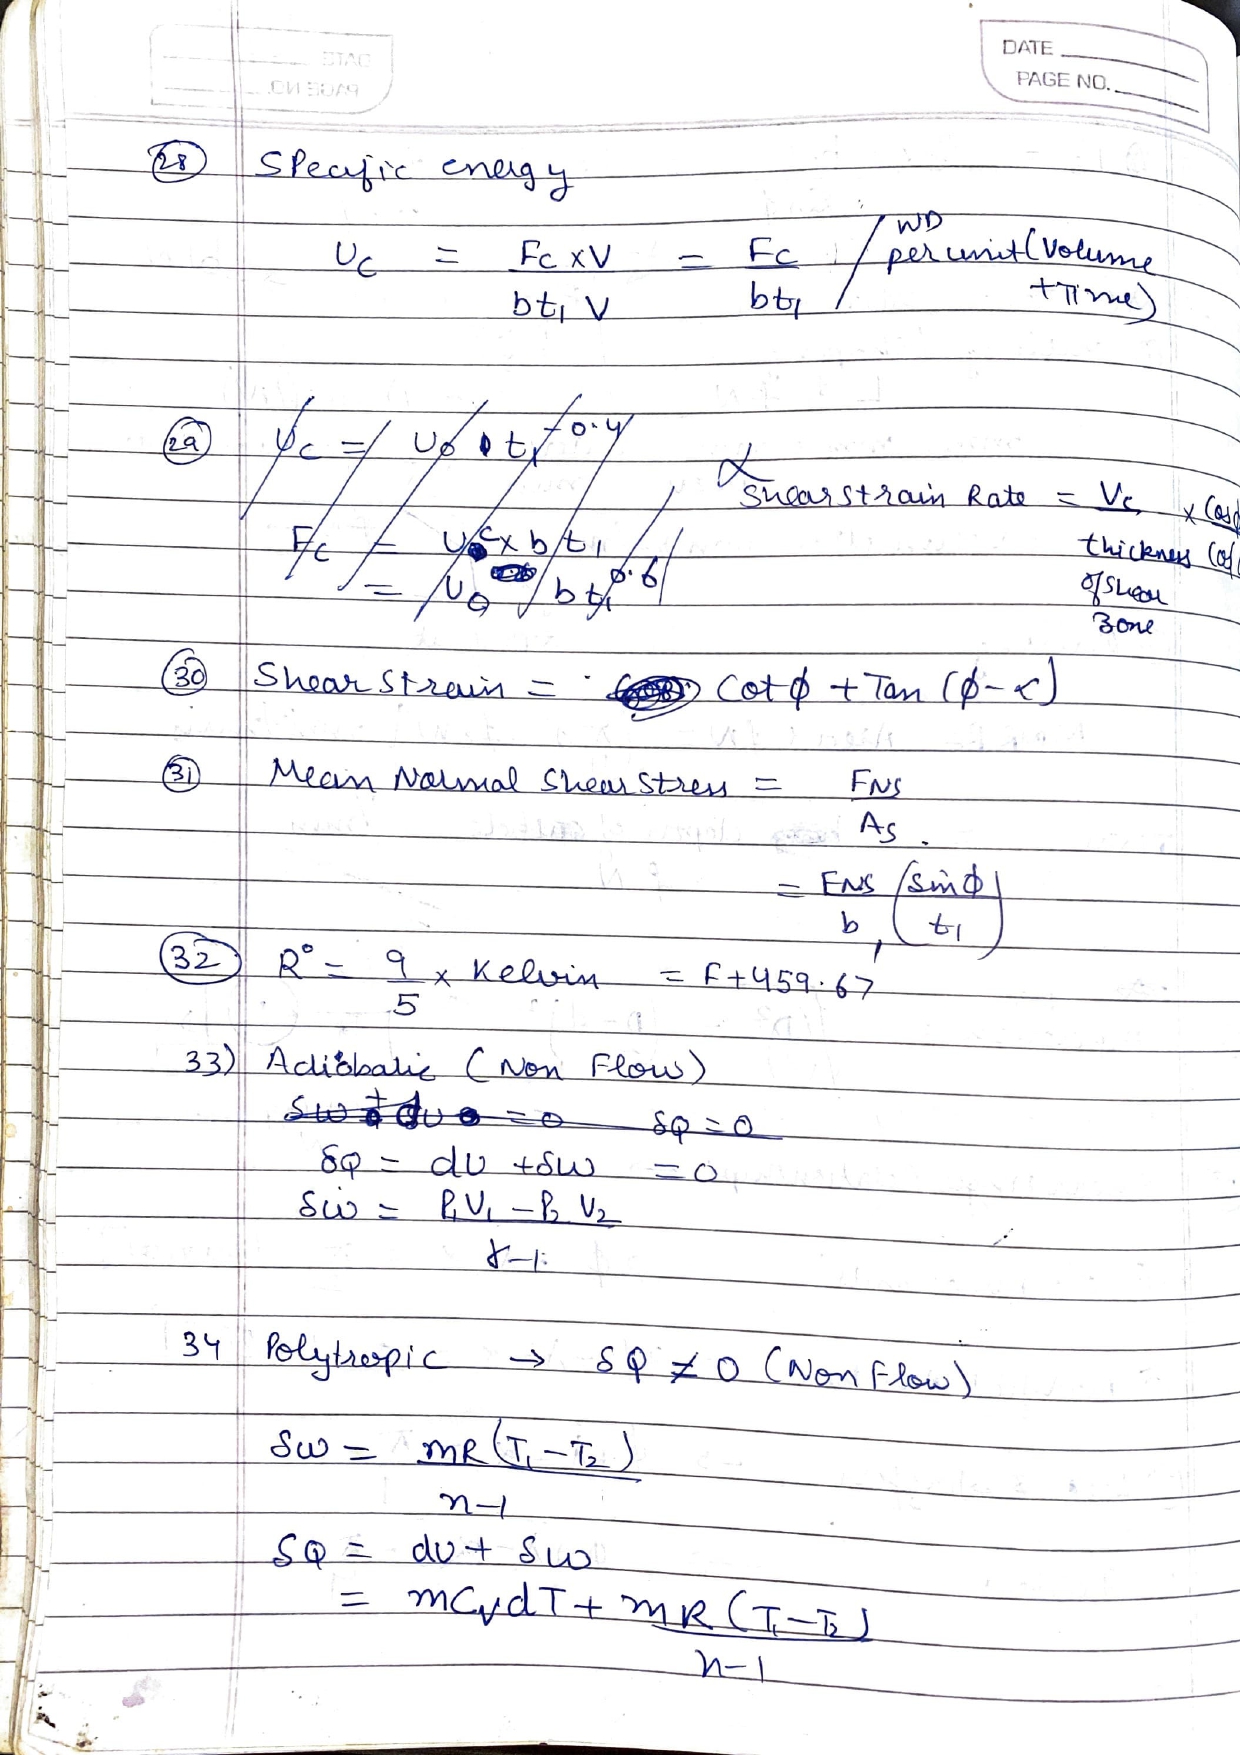 DATE
PAGE NO.
28 Specific energy
Uc = Fc x V / bt1 V = Fc / bt1 / WD per unit (Volume + Time)
29 Uc = U0 t1^-0.4
Fc = Uc x b t1
= U0 b t1^0.6
Shear strain Rate = Vc / thickness of shear zone x Cosα
30 Shear Strain = Cot φ + Tan (φ-α)
31 Mean Normal Shear Stress = FNS / As.
= FNS / b (sin φ / t1)
32 R° = 9/5 x Kelvin = F+459.67
33) Adiabatic (Non Flow)
δw + du = 0 δQ = 0
δQ = du + δw = 0
δw = P1V1 - P2 V2 / γ-1
34 Polytropic → δQ ≠ 0 (Non Flow)
δw = mR(T1-T2) / n-1
δQ = du + δw
= mCvdT + mR(T1-T2) / n-1